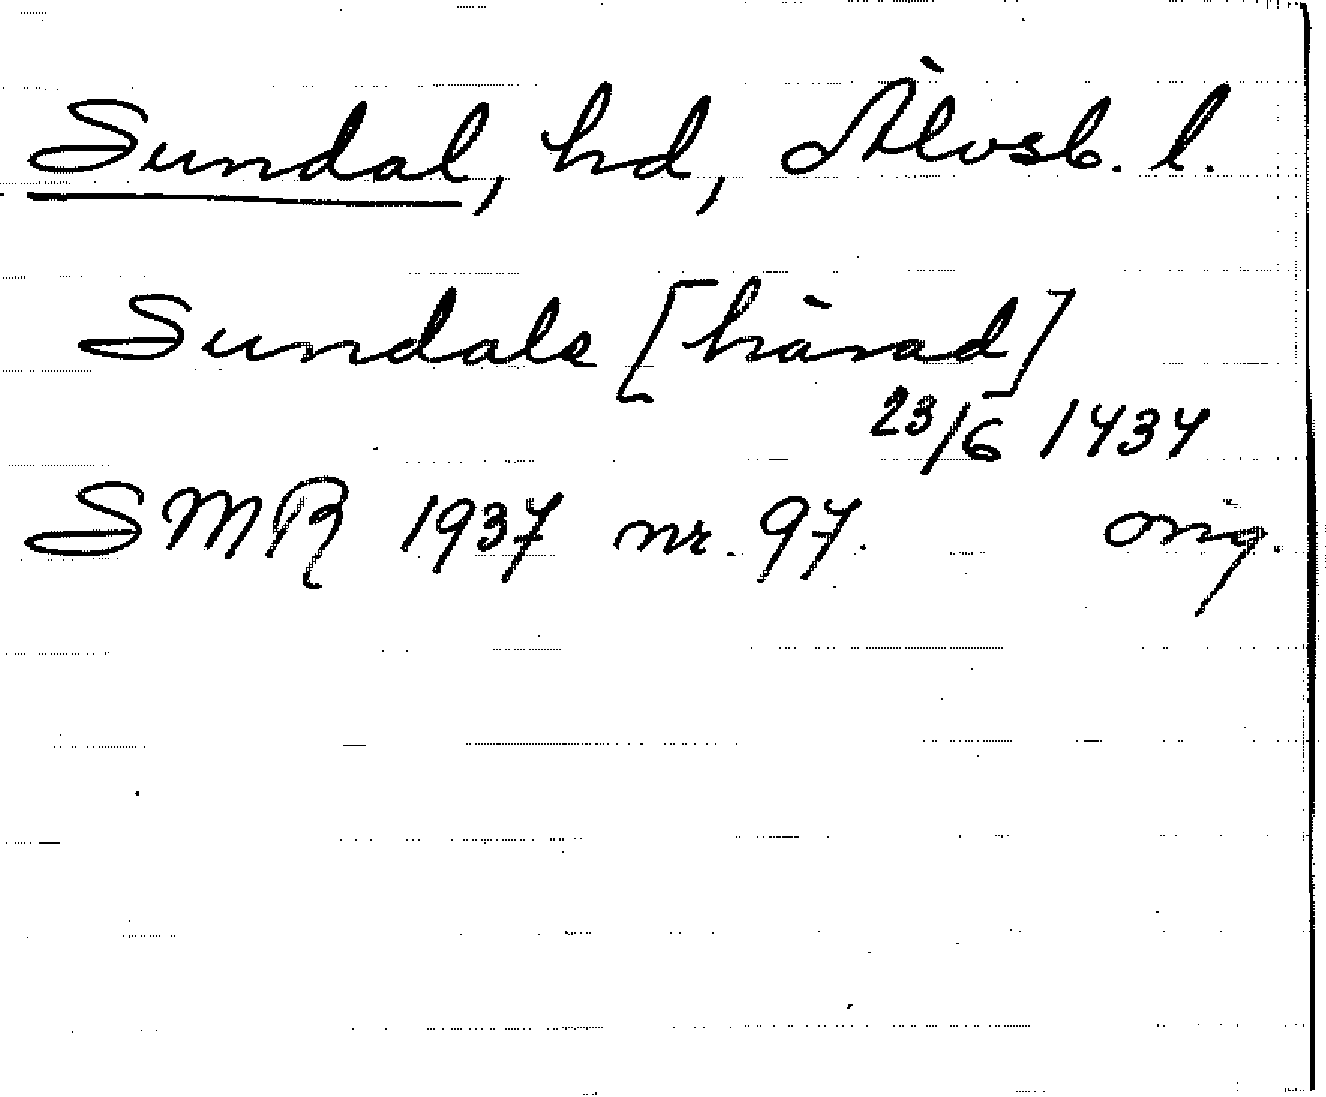 Sundal, hd, Älvsb. l.
Sundals [härad]
23/6 1434
SMR 1937 nr. 97. orig.